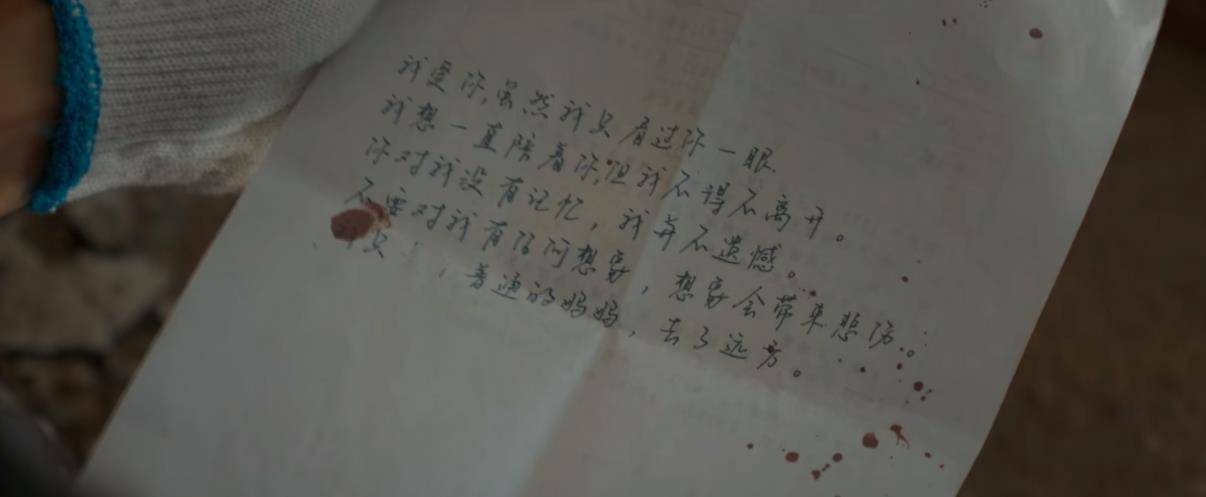 我爱你,虽然我只看过你一眼
我想一直陪着你,但我不得不离开。
你对我没有记忆，我并不遗憾。
不要对我有任何想象，想象会带来悲伤。
只 ，普通的妈妈，去了远方。